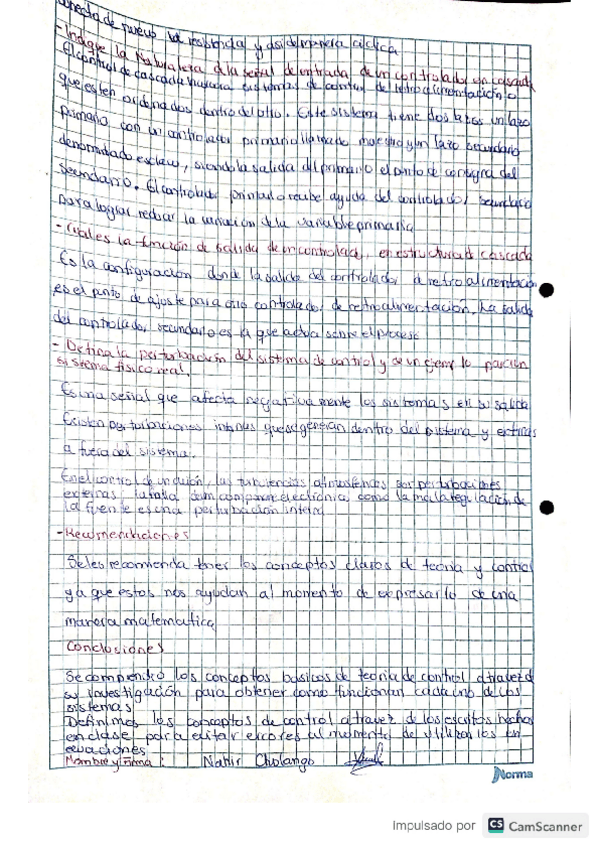 de nuevo la resistencia y asi de manera ciclica
- Indique la Naturaleza de la señal de entrada de un controlador en cascada
El control de cascada sistemas de control de retroalimentación o
que esten ordenados dentro del otro. Este sistema tiene dos lazos un lazo
primario con un controlador primario llamado maestro y un lazo secundario
denominado esclavo, siendo la salida del primario el punto de consigna del
Secundario. El controlador primario recibe ayuda del controlador secundario
para lograr reducir la variación de la variable primaria
- Cual es la función de salida de un controlador, en estructura de cascada
Es la configuracion donde la salida del controlador de retroalimentación
es el punto de ajuste para otro controlador de retroalimentación, La salida
del controlador secundario es la que actua sobre el proceso
- Defina la perturbación del sistema de control y de un ejemplo para un
sistema fisico real.
Es una señal que afecta negativamente los sistemas en su salida
Existen perturbaciones internas que se generan dentro del sistema y externas
a fuera del sistema.
En el control de un avión, las turbulencias atmosfericas son perturbaciones
externas, la falla de un componente electrónico como la mala regulación de
la fuente es una perturbación interna
- Recomendaciones
Se les recomienda tener los conceptos claros de teoria y control
ya que estos nos ayudan al momento de expresarlo de una
manera matematica
Conclusiones
Se comprendio los conceptos basicos de teoria de control a travez de
su investigación para obtener como funcionan cada uno de los
sistemas
Definimos los conceptos de control a travez de los escritos hechos
en clase para evitar errores al momento de utilizarlos en
ecuaciones
Nombre y firma: Nahir Cholango
Norma
Impulsado por CS CamScanner